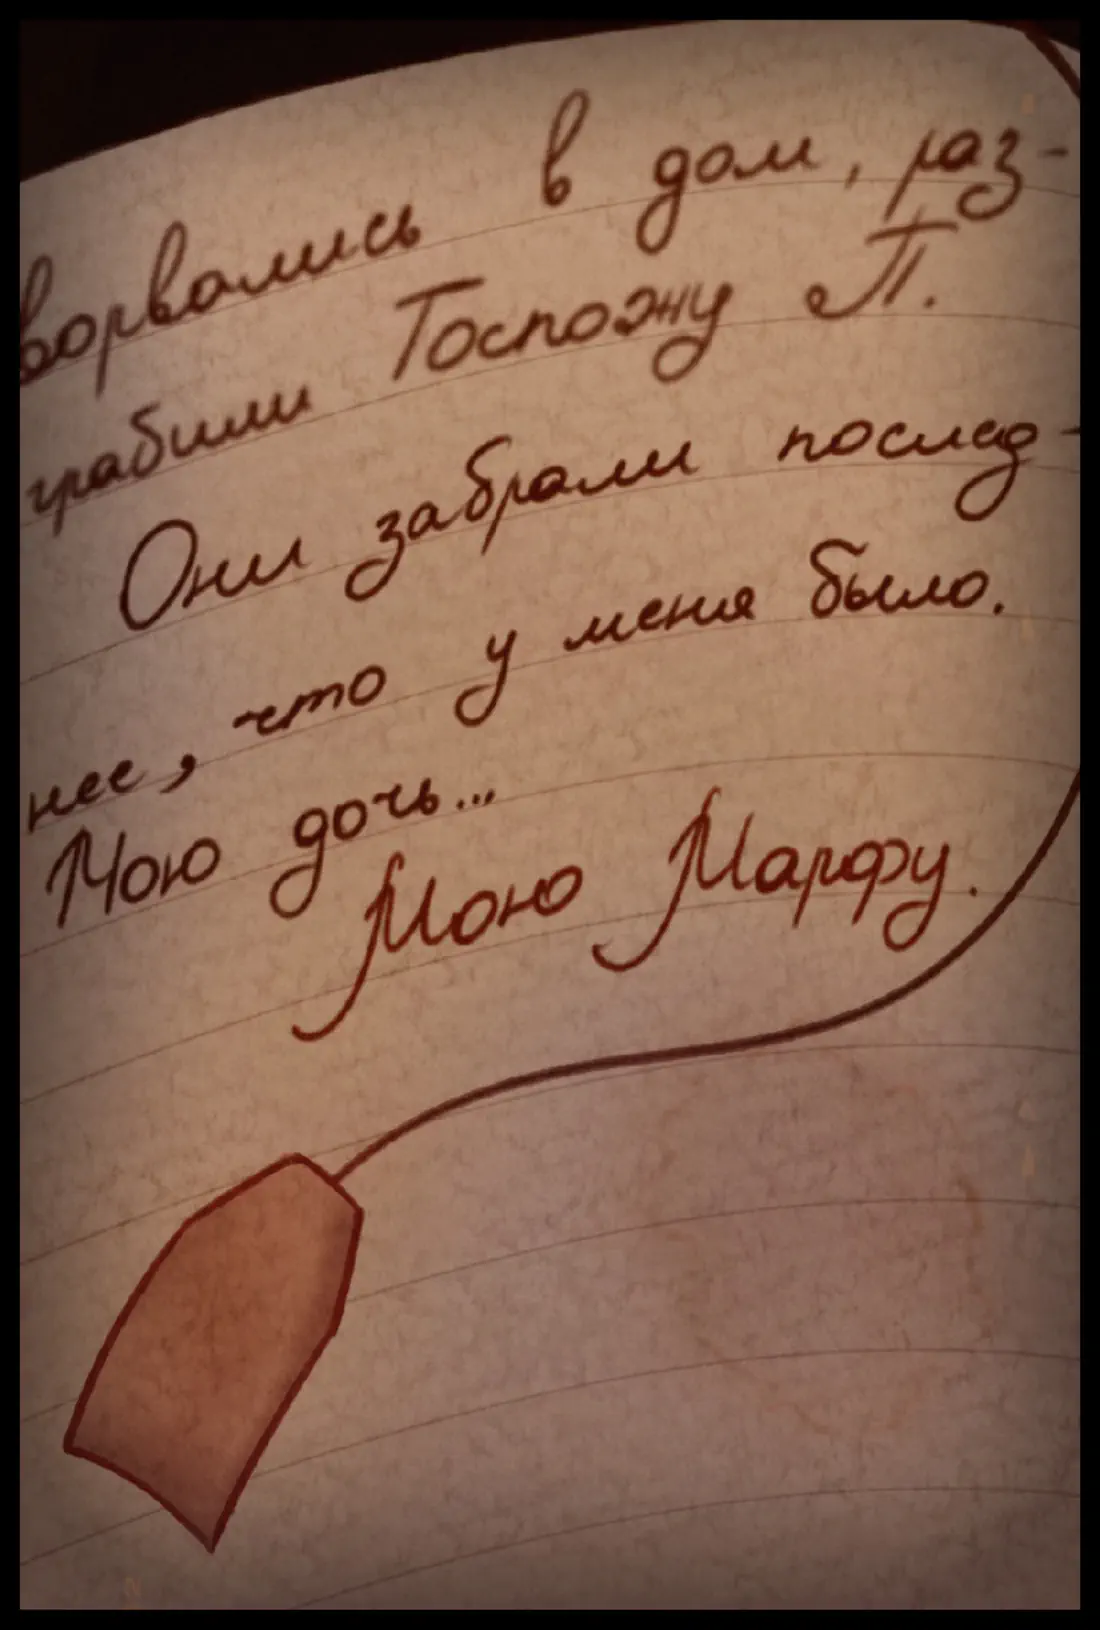 ворвались в дом, раз-
грабили Госпожу П.
Они забрали послед-
нее, что у меня было.
Мою дочь...
Мою Марфу.